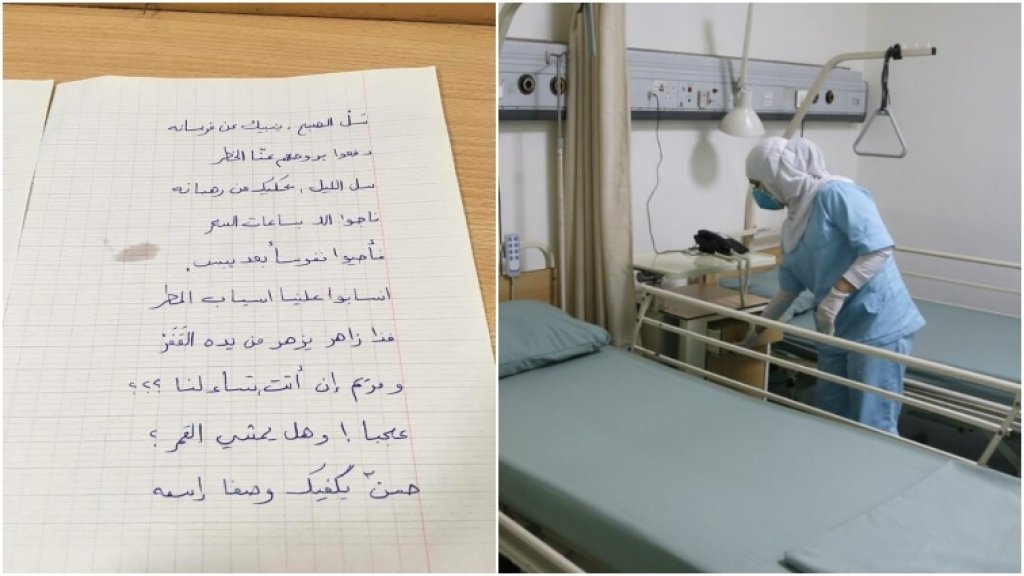 سَلْ الصبح، ينبيك عن فرسانه
دفعوا بروحهم عنّا الخطر
سل الليل، يحكيك من رهبانه
ناجوا الله بساعات السحر
فأحيوا نفوساً بعد يبس.
انسابوا علينا انسياب المطر
هذا زاهر يزهر من يده القَفَرْ
و مريم إن أتت، تساءلنا ؟؟؟
عجبا ! وهل يمشي القمر ؟
حسنٌ يكفيك وصفا إسمه